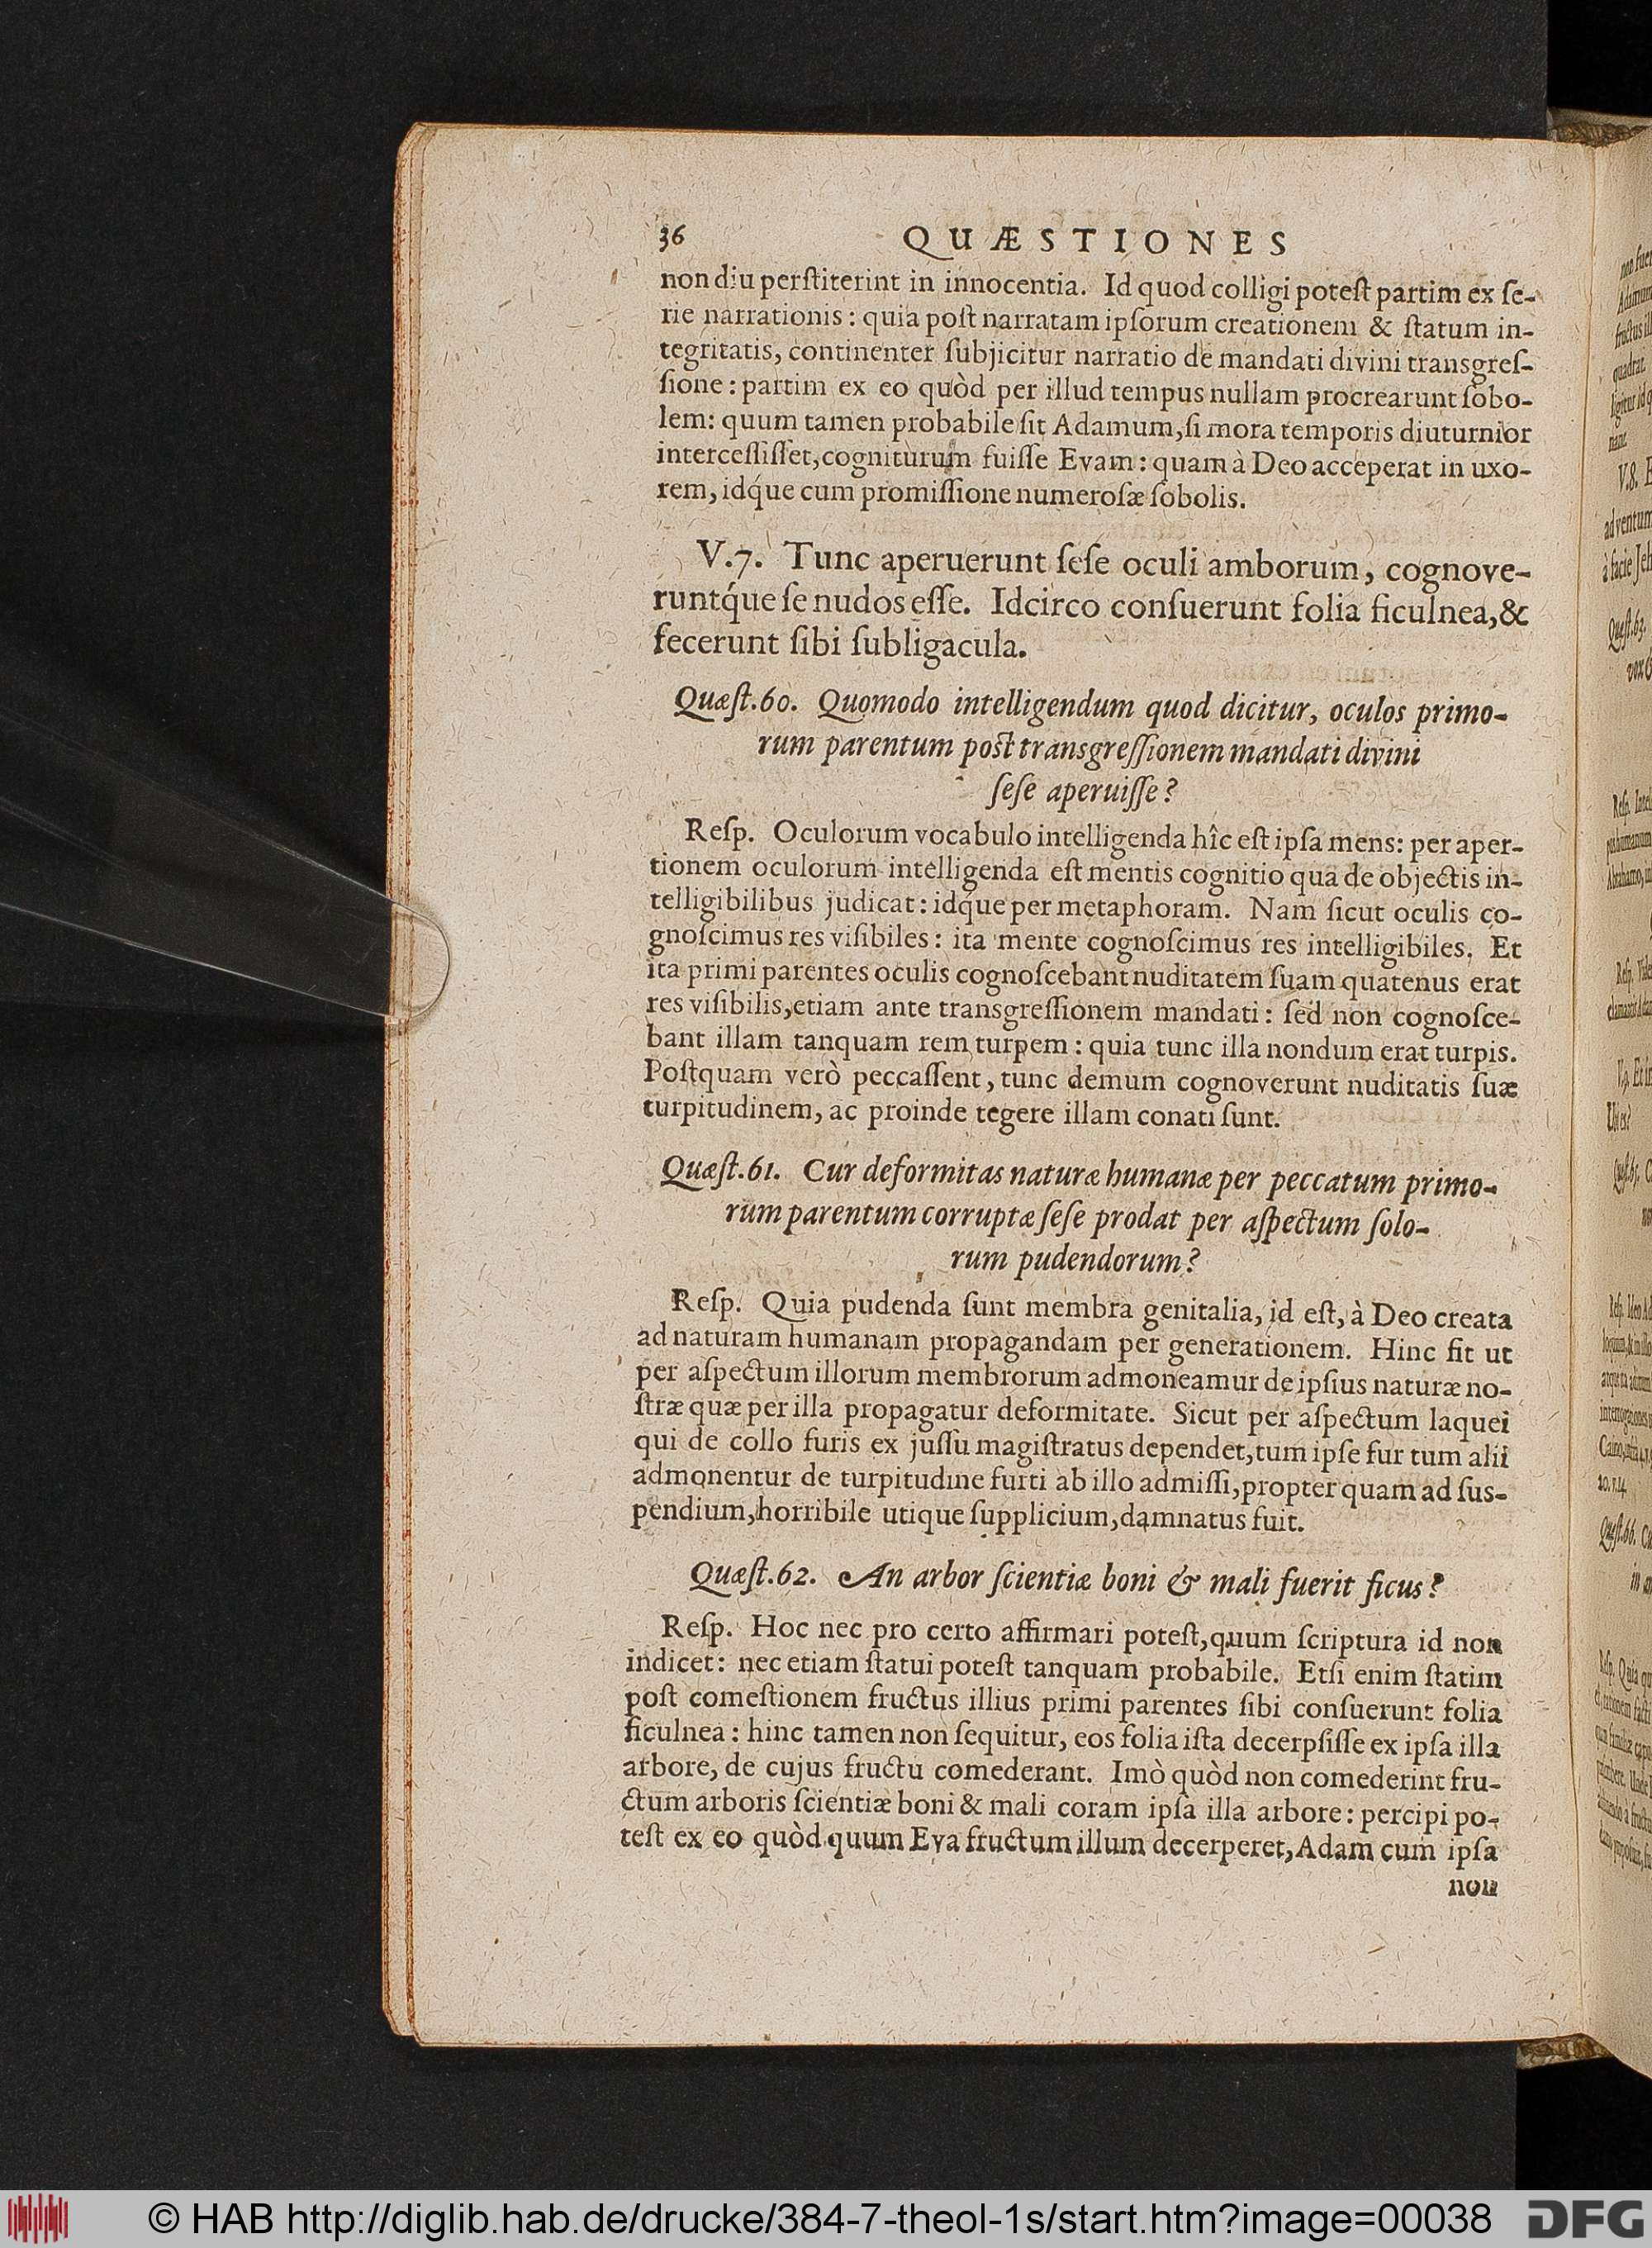 36 QUÆSTIONES
non diu perſtiterint in innocentia. Id quod colligi poteſt partim ex ſe-
rie narrationis: quia poſt narratam ipſorum creationem & ſtatum in-
tegritatis, continenter ſubjicitur narratio de mandati divini transgreſ-
ſione: partim ex eo quòd per illud tempus nullam procrearunt ſobo-
lem: quum tamen probabile ſit Adamum, ſi mora temporis diuturnior
interceſſiſſet, cogniturum fuiſſe Evam: quam à Deo acceperat in uxo-
rem, idq́ue cum promiſſione numeroſæ ſobolis.
V.7. Tunc aperuerunt ſeſe oculi amborum, cognove-
runtq́ue ſe nudos eſſe. Idcirco conſuerunt folia ficulnea, &
fecerunt ſibi ſubligacula.
Quæſt.60. Quomodo intelligendum quod dicitur, oculos primo-
rum parentum poſt transgreſſionem mandati divini
ſeſe aperuiſſe?
Reſp. Oculorum vocabulo intelligenda hîc eſt ipſa mens: per aper-
tionem oculorum intelligenda eſt mentis cognitio quâ de objectis in-
telligibilibus judicat: idq́ue per metaphoram. Nam ſicut oculis co-
gnoſcimus res viſibiles: ita mente cognoſcimus res intelligibiles. Et
ita primi parentes oculis cognoſcebant nuditatem ſuam quatenus erat
res viſibilis, etiam ante transgreſſionem mandati: ſed non cognoſce-
bant illam tanquam rem turpem: quia tunc illa nondum erat turpis.
Poſtquam verò peccaſſent, tunc demum cognoverunt nuditatis ſuæ
turpitudinem, ac proinde tegere illam conati ſunt.
Quæſt.61. Cur deformitas naturæ humanæ per peccatum primo-
rum parentum corruptæ ſeſe prodat per aſpectum ſolo-
rum pudendorum?
Reſp. Quia pudenda ſunt membra genitalia, id eſt, à Deo creata
ad naturam humanam propagandam per generationem. Hinc fit ut
per aſpectum illorum membrorum admoneamur de ipſius naturæ no-
ſtræ quæ per illa propagatur deformitate. Sicut per aſpectum laquei
qui de collo furis ex juſſu magiſtratus dependet, tum ipſe fur tum alii
admonentur de turpitudine furti ab illo admiſſi, propter quam ad ſus-
pendium, horribile utique ſupplicium, damnatus fuit.
Quæſt.62. An arbor ſcientiæ boni & mali fuerit ficus?
Reſp. Hoc nec pro certo affirmari poteſt, quum ſcriptura id non
indicet: nec etiam ſtatui poteſt tanquam probabile. Etſi enim ſtatim
poſt comeſtionem fructus illius primi parentes ſibi conſuerunt folia
ficulnea: hinc tamen non ſequitur, eos folia iſta decerpſiſſe ex ipſa illa
arbore, de cujus fructu comederant. Imò quòd non comederint fru-
ctum arboris ſcientiæ boni & mali coram ipſa illa arbore: percipi po-
teſt ex eo quòd quum Eva fructum illum decerperet, Adam cum ipſa
non
© HAB http://diglib.hab.de/drucke/384-7-theol-1s/start.htm?image=00038
DFG